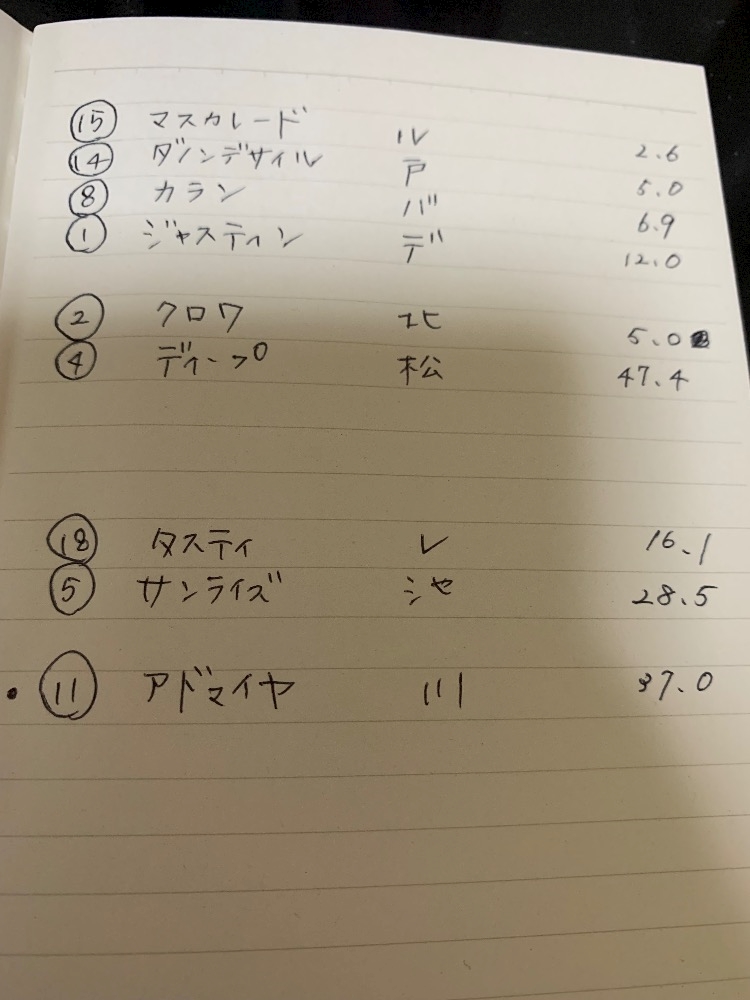 ⑮ マスカレード ル 2.6
⑭ ダノンデサイル 戸 5.0
⑧ カラン バ 6.9
① ジャスティン デ 12.0
② クロワ 北 5.0
④ ディープ 松 47.4
⑱ タスティ レ 16.1
⑤ サンライズ シャ 28.5
• ⑪ アドマイヤ 川 37.0